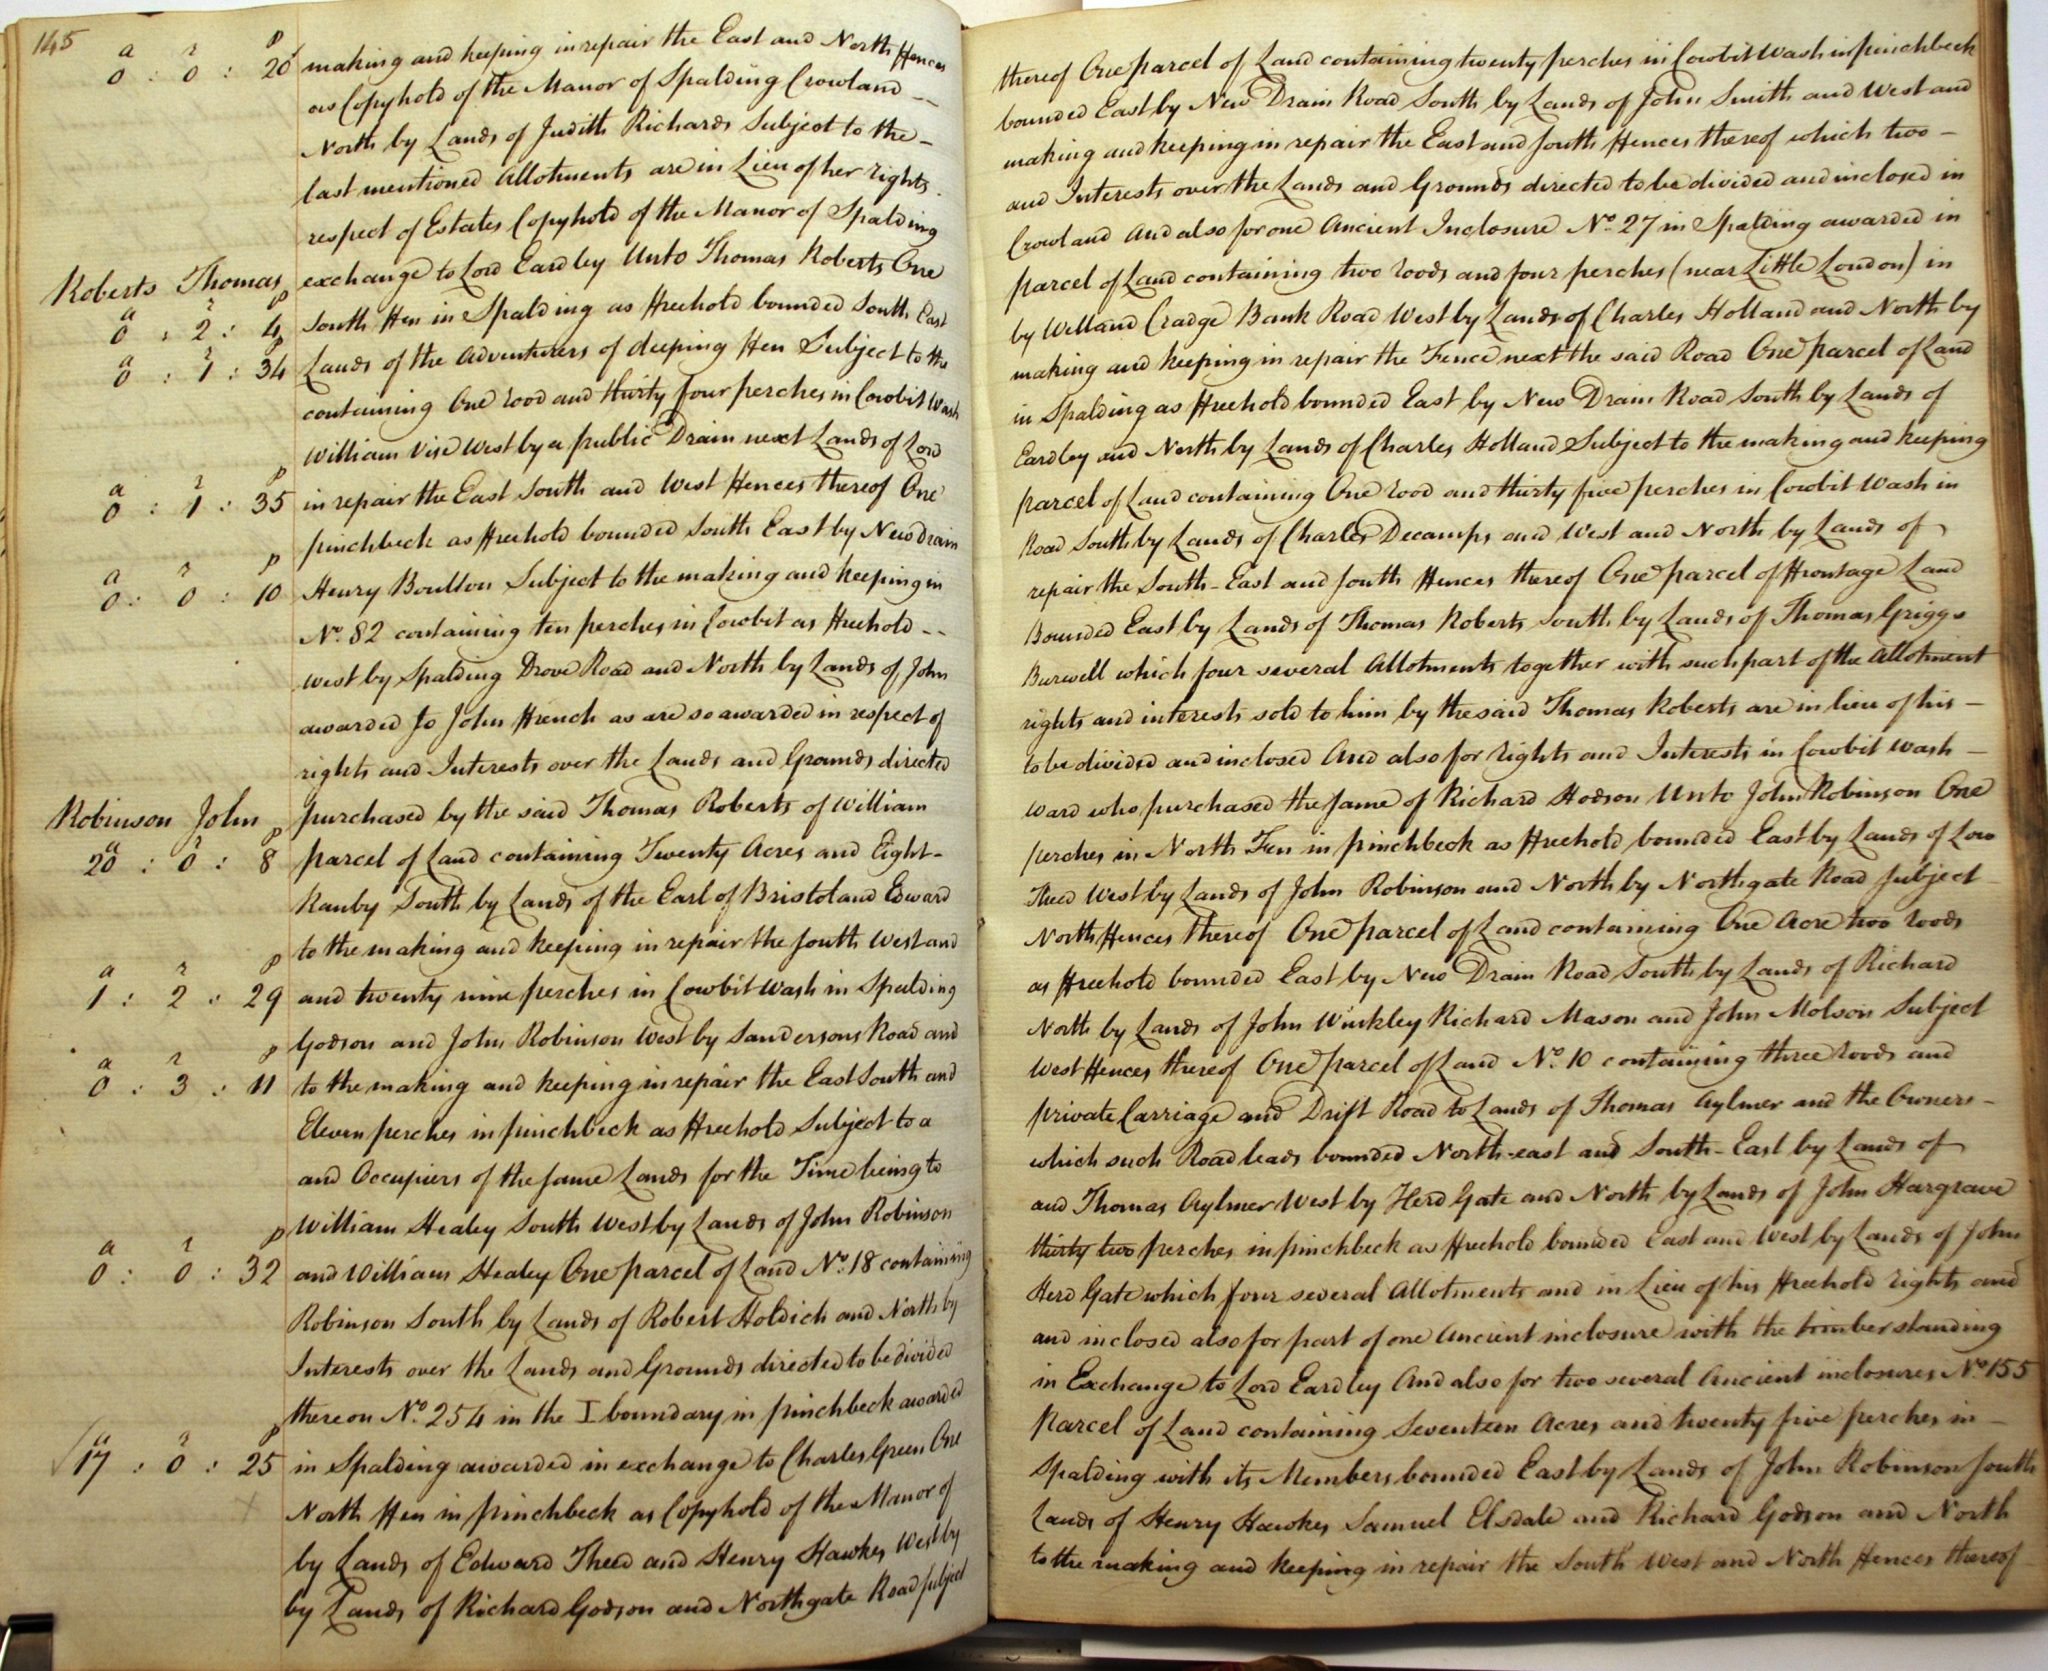 145
a r p
0 : 0 : 20 making and keeping in repair the East and North Fences thereof One parcel of Land containing twenty perches in Cowbit Wash in pinchbeck
as Copyhold of the Manor of Spalding Crowland -- bounded East by New Drain Road South by Lands of John Smith and West and
North by Lands of Judith Richards Subject to the - making and keeping in repair the East and South Fences thereof which two -
last mentioned Allotments are in Lieu of her rights and Interests over the Lands and Grounds directed to be divided and inclosed in
respect of Estates Copyhold of the Manor of Spalding Crowland And also for one Ancient Inclosure No. 27 in Spalding awarded in
Roberts Thomas exchange to Lord Eardley Unto Thomas Roberts One parcel of Land containing two roods and four perches (near Little London) in
a r p
0 : 2 : 4 South Fen in Spalding as Freehold bounded South East by Welland Cradge Bank Road West by Lands of Charles Holland and North by
a r p
0 : 1 : 34 Lands of the Adventurers of deeping Fen Subject to the making and keeping in repair the Fence next the said Road One parcel of Land
containing One rood and thirty four perches in Cowbit Wash in Spalding as Freehold bounded East by New Drain Road South by Lands of
William Vise West by a public Drain next Lands of Lord Eardley and North by Lands of Charles Holland Subject to the making and keeping
a r p
0 : 1 : 35 in repair the East South and West Fences thereof One parcel of Land containing One rood and thirty five perches in Cowbit Wash in
pinchbeck as Freehold bounded South East by New Drain Road South by Lands of Charles Decamps and West and North by Lands of
a r p
0 : 0 : 10 Henry Boulton Subject to the making and keeping in repair the South-East and South Fences thereof One parcel of Frontage Land
No. 82 containing ten perches in Cowbit as Freehold -- Bounded East by Lands of Thomas Roberts South by Lands of Thomas Griggs
West by Spalding Drove Road and North by Lands of John Burwell which four several Allotments together with such part of the Allotment
awarded to John French as are so awarded in respect of rights and interests sold to him by the said Thomas Roberts are in lieu of his -
rights and Interests over the Lands and Grounds directed to be divided and inclosed And also for rights and Interests in Cowbit Wash -
Robinson John purchased by the said Thomas Roberts of William Ward who purchased the same of Richard Hodson Unto John Robinson One
a r p
20 : 0 : 8 parcel of Land containing Twenty Acres and Eight- perches in North Fen in pinchbeck as Freehold bounded East by Lands of Low
Ranby South by Lands of the Earl of Bristol and Edward Theed West by Lands of John Robinson and North by Northgate Road Subject
to the making and keeping in repair the South West and North Fences thereof One parcel of Land containing One Acre two roods
a r p
1 : 2 : 29 and twenty nine perches in Cowbit Wash in Spalding as Freehold bounded East by New Drain Road South by Lands of Richard
Godson and John Robinson West by Sandersons Road and North by Lands of John Winkley Richard Mason and John Molson Subject
a r p
0 : 3 : 11 to the making and keeping in repair the East South and West Fences thereof One parcel of Land No. 10 containing three roods and
Eleven perches in pinchbeck as Freehold Subject to a private Carriage and Drift Road to Lands of Thomas Aylmer and the Owners -
and Occupiers of the same Lands for the Time being to which such Road leads bounded North-east and South-East by Lands of
William Healey South West by Lands of John Robinson and Thomas Aylmer West by Herd Gate and North by Lands of John Hargrave
a r p
0 : 0 : 32 and William Healey One parcel of Land No. 18 containing thirty two perches in pinchbeck as Freehold bounded East and West by Lands of John
Robinson South by Lands of Robert Holdich and North by Herd Gate which four several Allotments and in Lieu of his Freehold rights and
Interests over the Lands and Grounds directed to be divided and inclosed also for part of one Ancient inclosure with the timber standing
thereon No. 254 in the I boundary in pinchbeck awarded in Exchange to Lord Eardley And also for two several Ancient inclosures No. 155
a r p
17 : 0 : 25 in Spalding awarded in exchange to Charles Green One Parcel of Land containing Seventeen Acres and twenty five perches in -
North Fen in pinchbeck as Copyhold of the Manor of Spalding with its Members bounded East by Lands of John Robinson South
by Lands of Edward Theed and Henry Hawkes West by Lands of Henry Hawkes Samuel Elsdale and Richard Godson and North
by Lands of Richard Godson and Northgate Road Subject to the making and keeping in repair the South West and North Fences thereof